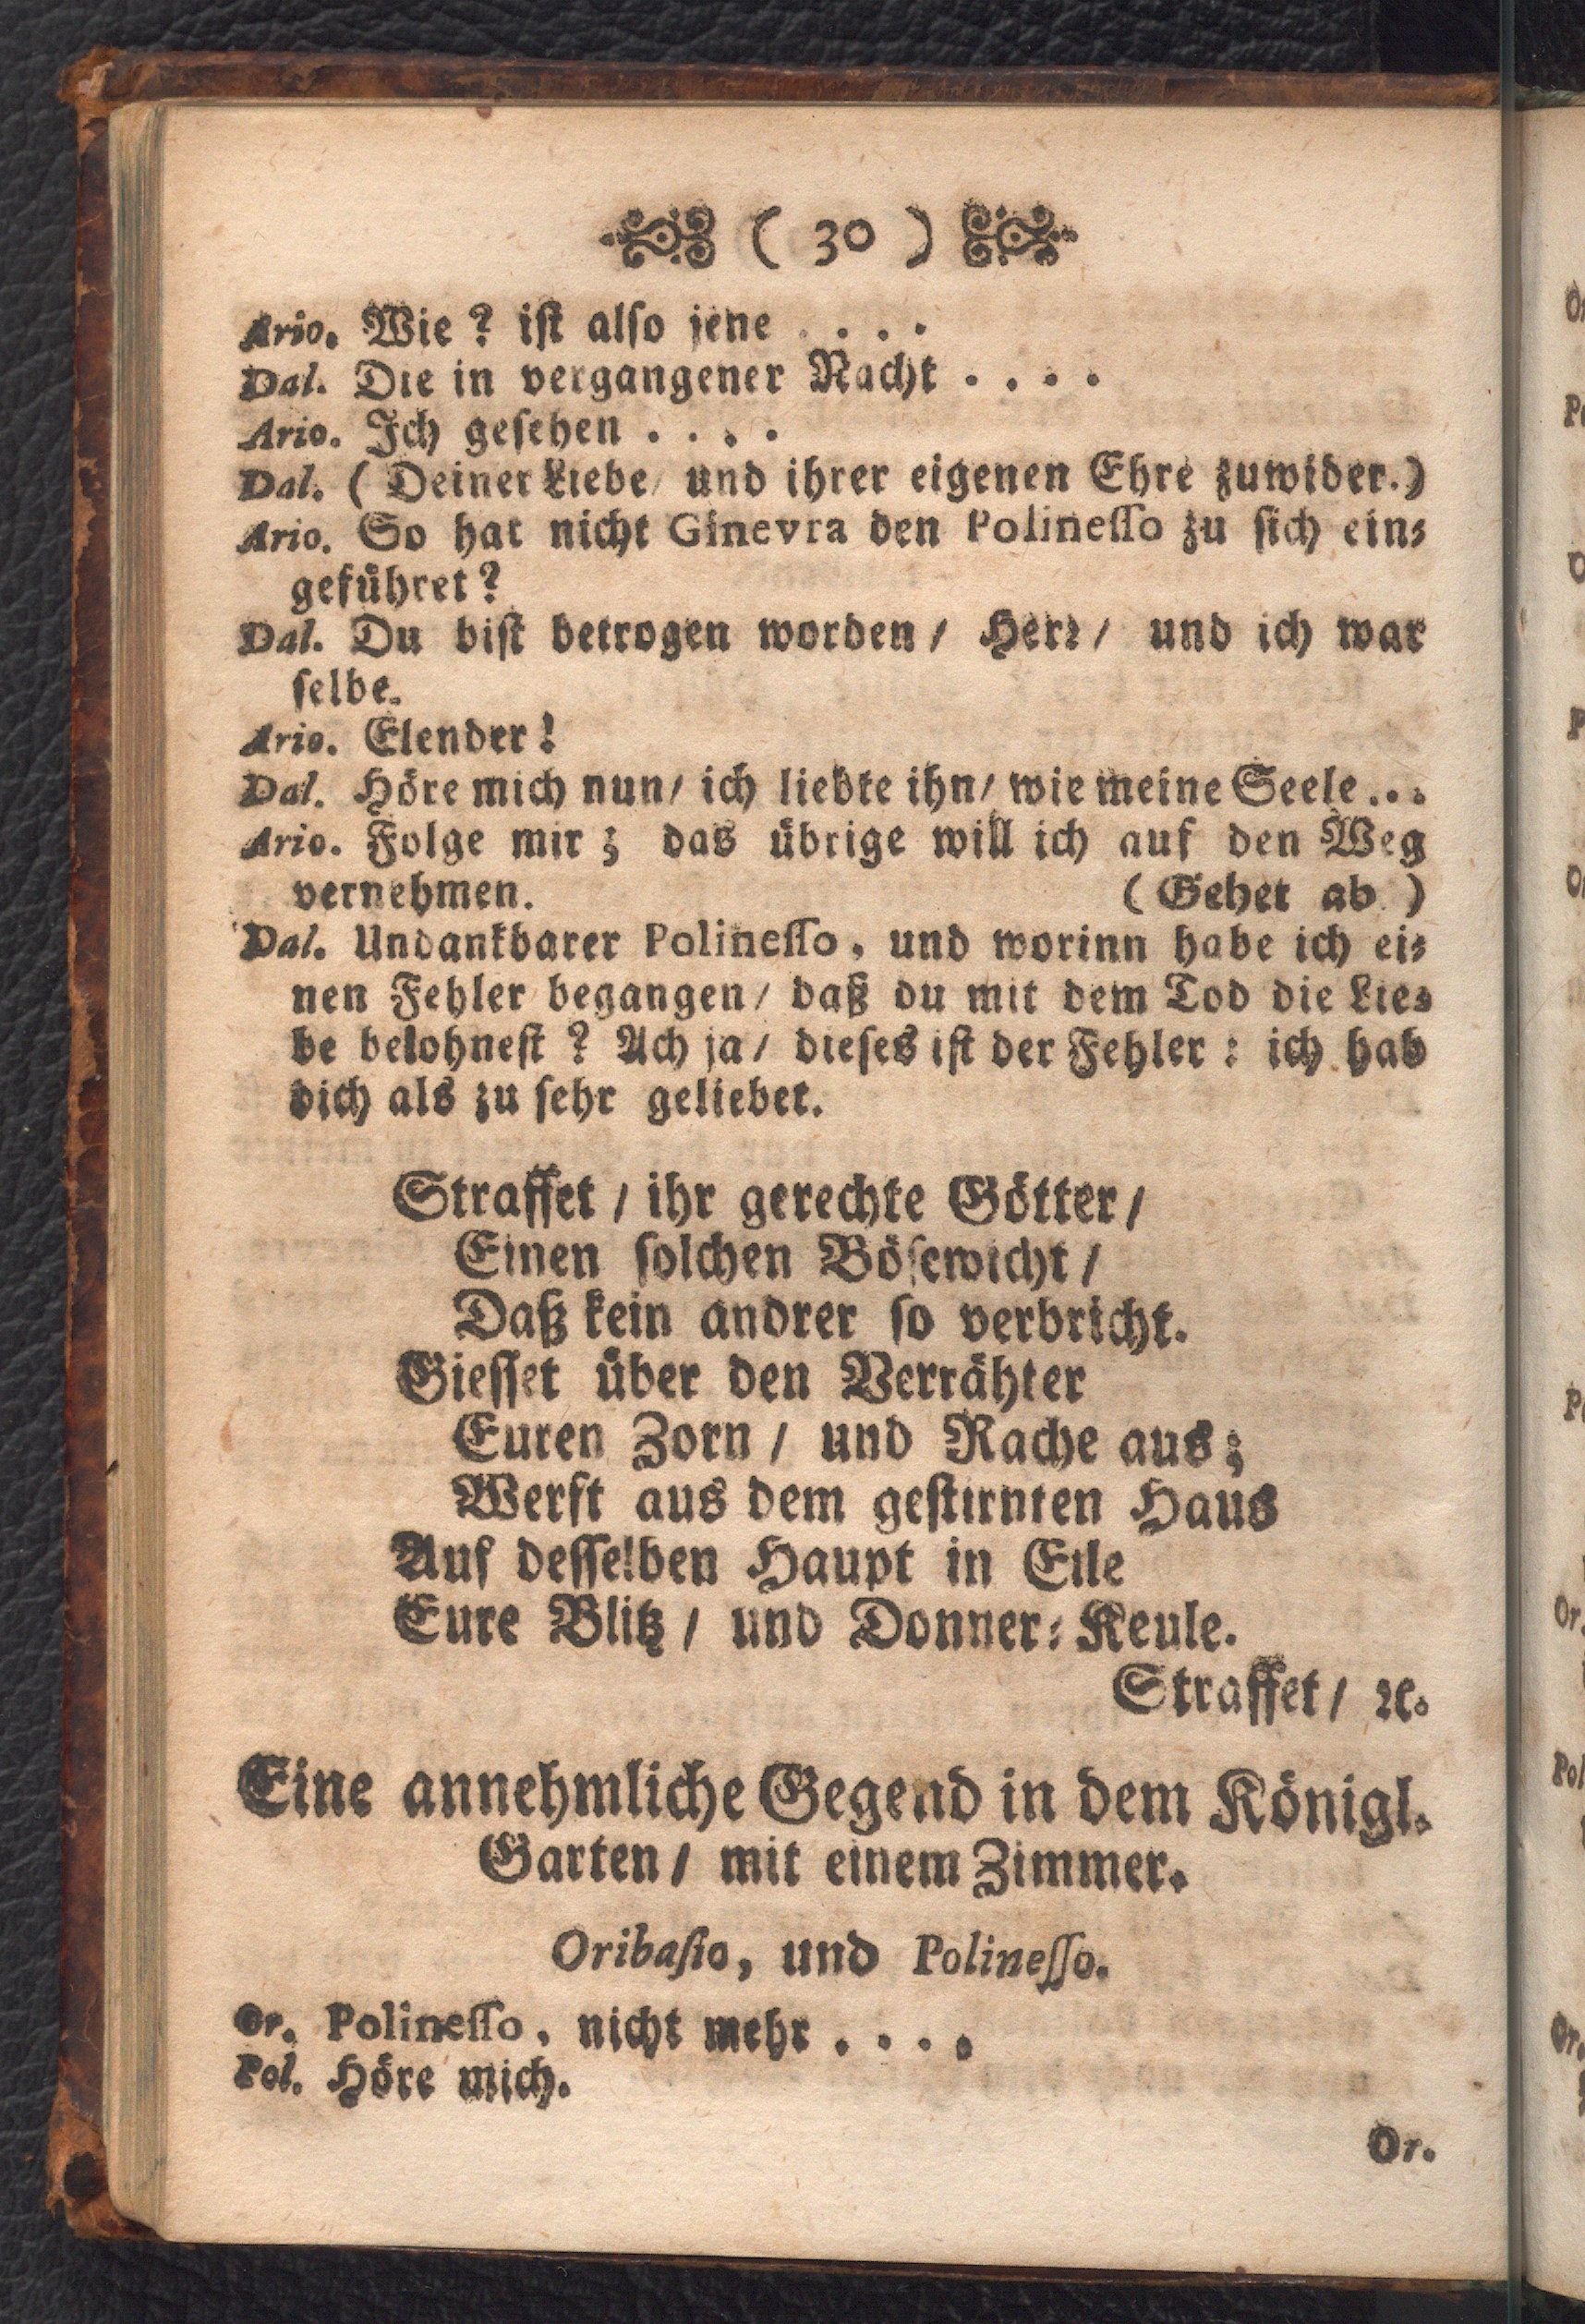 ( 30 )
Ario. Wie ? ist also jene . . . .
Dal. Die in vergangener Nacht . . . .
Ario. Ich gesehen . . . .
Dal. ( Deiner Liebe / und ihrer eigenen Ehre zuwider.)
Ario. So hat nicht Ginevra den Polinesso zu sich ein⸗
geführet ?
Dal. Du bist betrogen worden / Herr / und ich war
selbe.
Ario. Elender !
Dal. Höre mich nun / ich liebte ihn / wie meine Seele . . .
Ario. Folge mir ; das übrige will ich auf den Weg
vernehmen. ( Gehet ab. )
Dal. Undankbarer Polinesso, und worinn habe ich ei⸗
nen Fehler begangen / daß du mit dem Tod die Lie⸗
be belohnest ? Ach ja / dieses ist der Fehler : ich hab
dich als zu sehr geliebet.
Straffet / ihr gerechte Götter /
Einen solchen Bösewicht /
Daß kein andrer so verbricht.
Giesset über den Verrähter
Euren Zorn / und Rache aus ;
Werft aus dem gestirnten Haus
Auf desselben Haupt in Eile
Eure Blitz / und Donner⸗Keule.
Straffet / ꝛc.
Eine annehmliche Gegend in dem Königl.
Garten / mit einem Zimmer.
Oribasio, und Polinesso.
Or. Polinesso, nicht mehr . . . .
Pol. Höre mich.
Or.